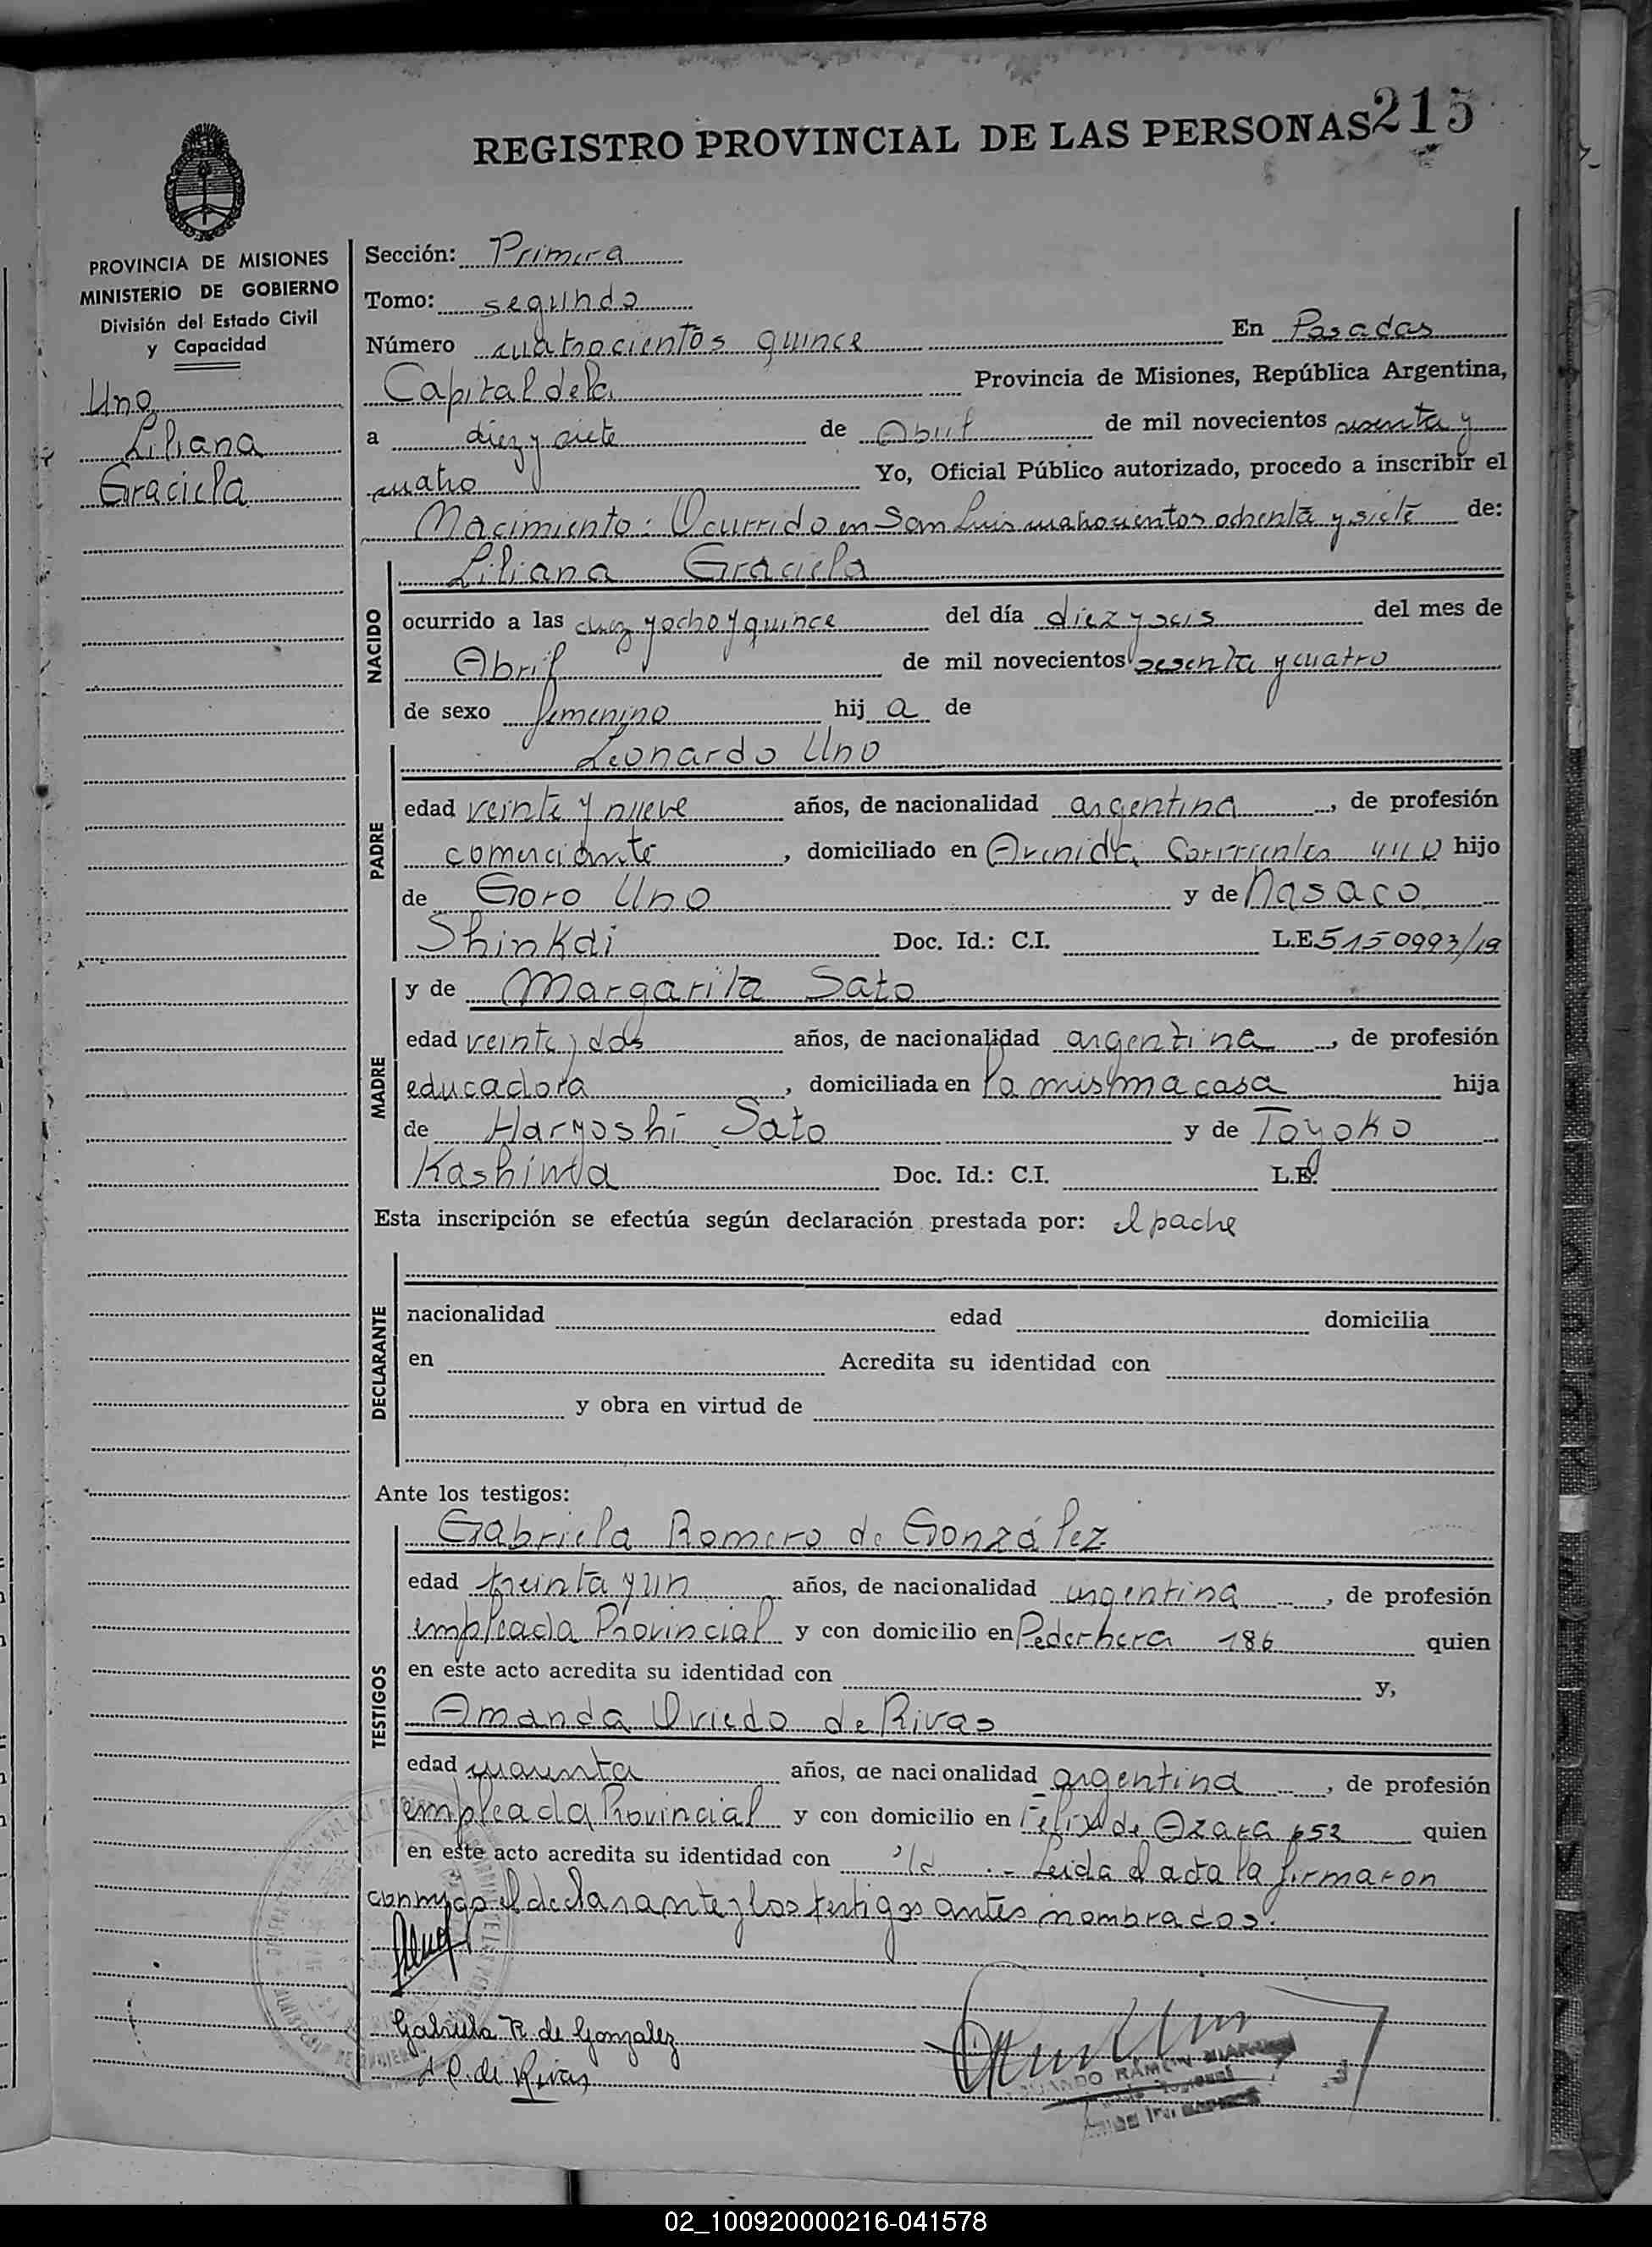 REGISTRO PROVINCIAL DE LAS PERSONAS 215
PROVINCIA DE MISIONES
MINISTERIO DE GOBIERNO
División del Estado Civil
y Capacidad
Uno
Liliana
Graciela
Sección: Primera
Tomo: segundo
Número cuatrocientos quince En Posadas
Capital de la Provincia de Misiones, República Argentina,
a diez y siete de Abril de mil novecientos sesenta y
cuatro Yo, Oficial Público autorizado, procedo a inscribir el
Nacimiento: Ocurrido en San Luis cuatrocientos ochenta y siete de:
NACIDO
Liliana Graciela
ocurrido a las diez y ocho y quince del día diez y seis del mes de
Abril de mil novecientos sesenta y cuatro
de sexo femenino hij a de
PADRE
Leonardo Uno
edad veinte y nueve años, de nacionalidad argentina, de profesión
comerciante, domiciliado en Avenida Corrientes hijo
de Goro Uno y de Nasaco
Shinkai Doc. Id.: C.I. L.E. 5150993/19
MADRE
y de Margarita Sato
edad veinte y dos años, de nacionalidad argentina, de profesión
educadora, domiciliada en la misma casa hija
de Haryoshi Sato y de Toyoko
Kashima Doc. Id.: C.I. L.E.
Esta inscripción se efectúa según declaración prestada por: el padre
DECLARANTE
nacionalidad edad domicilia
en Acredita su identidad con
y obra en virtud de
Ante los testigos:
TESTIGOS
Gabriela Romero de González
edad treinta y un años, de nacionalidad argentina, de profesión
empleada Provincial y con domicilio en Pedernera 186 quien
en este acto acredita su identidad con y,
Amanda Oviedo de Rivas
edad cuarenta años, de nacionalidad argentina, de profesión
empleada Provincial y con domicilio en Felix de Azara 652 quien
en este acto acredita su identidad con Id .- Leida el acta la firmaron
conmigo el declarante y los testigos antes nombrados.
Gabriela R. de Gonzalez
A O. de Rivas
RAMON
02_100920000216-041578